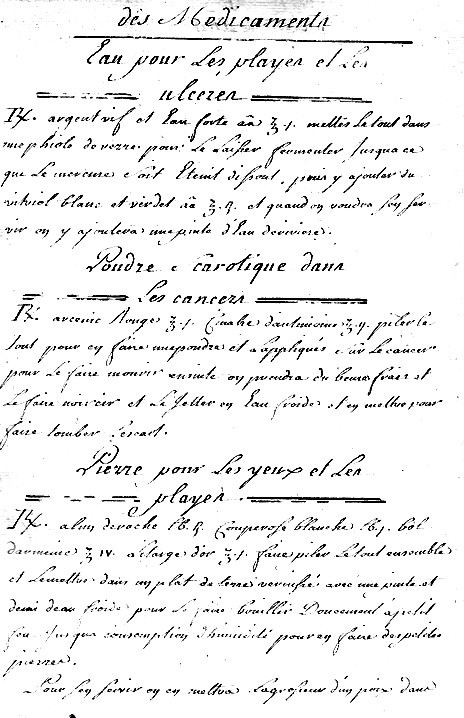 des Medicaments
Eau pour Les playes et Les
ulceres
℞. argent vif et Eau forte āā ℥ 1. mettes Le tout dans
une phiole de verre pour Le Laisser fermenter Jusqua ce
que Le mercure soit Eteint dissout, puis y ajouter du
vitriol blanc et verdet āā ℥ et quand on voudra sen ser
vir on y ajoutera une pinte d'Eau de riviere.
Poudre carotique dans
Les cancers
℞. arcenic Rouge ℥ 1. Cinabre dantimoine ℥ piler le
tout pour en faire une poudre et appliqués sur Le cancer
pour Le faire mourir ensuite on prendra du beure frais et
Le faire noircir et Le Jetter en Eau froide et en mettre pour
faire tomber Lescart.
Pierre pour Les yeux et Les
playes
℞. alun de roche lb. Couperose blanche lb. bol
darmenie ℥ IV. Letarge dor ℥ faire piler Le tout ensemble
et Le mettre dans un plat de terre vernissé avec une pinte et
demi deau froide pour Le faire bouillir Doucement a petit
feu Jusqua consomption d'humidité pour en faire des petites
pierres.
Pour sen servir on en mettra La grosseur d'un poix dans